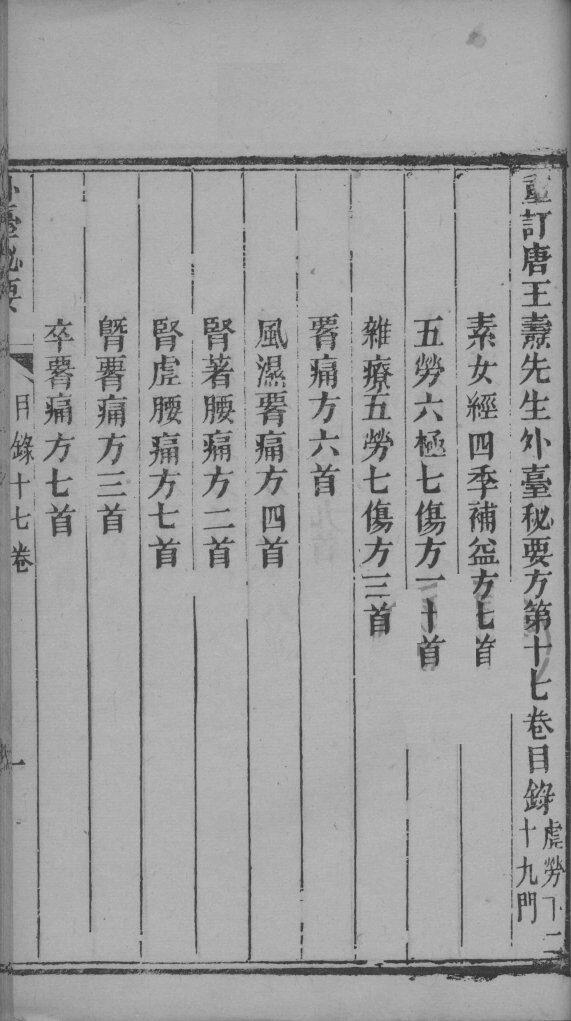 重訂唐王燾先生外臺秘要方第十七卷目錄虛勞下二
十九門
素女經四季補益方七首
五勞六極七傷方一十首
雜療五勞七傷方三首
䯒痛方六首
風濕䯒痛方四首
腎著腰痛方二首
腎虛腰痛方七首
䯒痛方三首
卒䯒痛方七首
外臺秘要
目錄十七卷
一